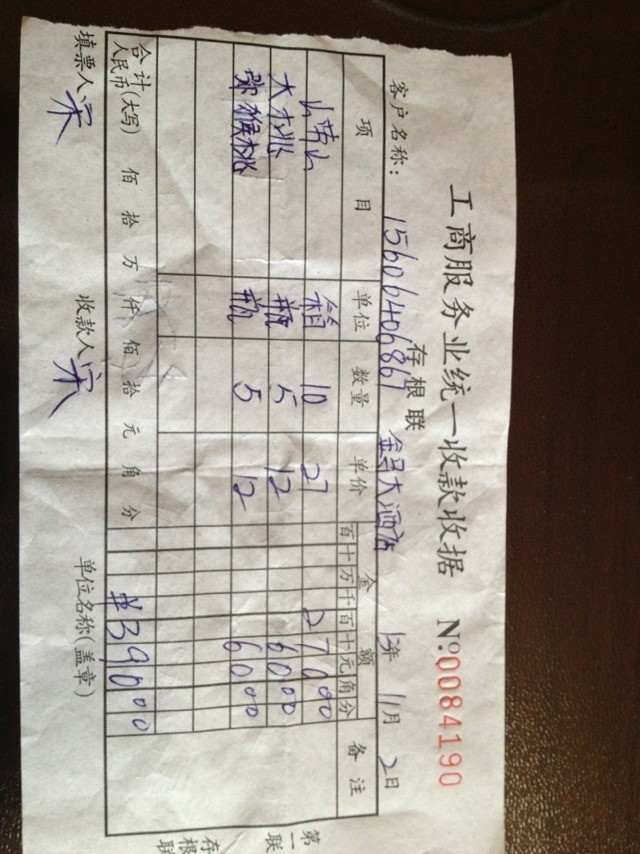 工商服务业统一收款收据 №0084190
存根联
客户名称: 15606406867 金马大酒店 13年 11月 2日
项目 单位 数量 单价 金额 备注
百十万千百十元角分
箱 10 27 27000
大木桃 瓶 5 12 6000
猕猴桃 瓶 5 12 6000
合计人民币(大写) 佰 拾 万 仟 佰 拾 元 角 分 ¥39000
填票人 宋 收款人 宋 单位名称(盖章)
第一联 存根联